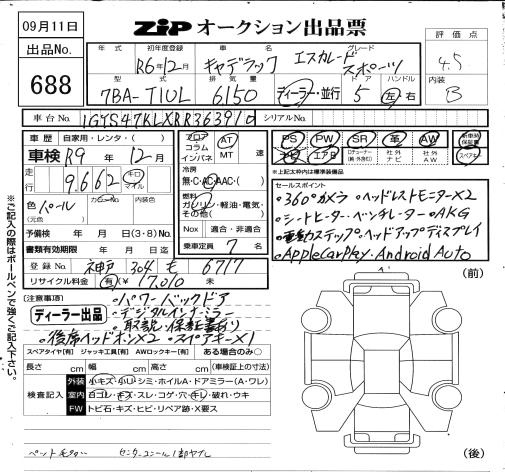 09月11日
ZIP オークション出品票
出品No.
688
評価点
4.5
内装
B
年式 初年度登録 車名 グレード
R6年12月 キャデラック エスカレード スポーツ
型式 排気量 ドア ハンドル
7BA-T1UL 6150 ディーラー・並行 5 左 右
車台No. 1GYS47KLXRR363910 シリアルNo.
車歴 自家用・レンタ・( )
車検 R9年 12月
走行 9,662 キロ マイル
色 パール カラーNo. 内装色
(元色)
予備検 年 月 日(3・8)No.
書類有効期限 年 月 日迄
登録No. 神戸 304 も 6717
リサイクル料金 有(¥ 17,010 未
フロア コラム インパネ AT MT 速
冷房 無・C・AC・AAC・( )
燃料 ガソリン・軽油・電気・その他( )
Nox 適合・非適合
乗車定員 7 名
PS PW SR 革 AW 新車時保証書
ナビ エアB 社外ナビ 社外AW スペアキー
※上記太枠内は標準装備品
セールスポイント
・360°カメラ ・ヘッドレストモニター×2
・シートヒーター・ベンチレーター ・AKG
・電動ステップ・ヘッドアップディスプレイ
・AppleCarPlay・Android Auto
(注意事項)
ディーラー出品
・パワーバックドア
・デジタルインナーミラー
・取説・保証書あり
・後席ヘッドホン×2 ・スペアキー×1
スペアタイヤ[有] ジャッキ工具[有] AWロックキー[有] ある場合のみ○
長さ cm 幅 cm 高さ cm (車検証上の寸法)
検査記入
外装 小キズ・小U・シミ・ホイルA・ドアミラー(A・ワレ)
室内 ヨゴレ・キズ・スレ・コゲ・穴・キレ・破れ・ウキ
FW トビ石・キズ・ヒビ・リペア跡・X要ス
(前)
(後)
※ご記入の際はボールペンで強くご記入下さい。